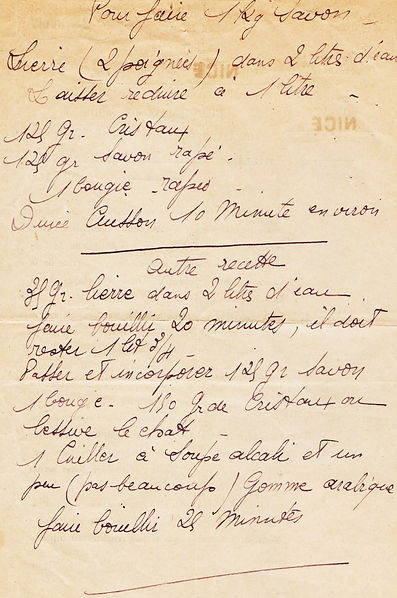 Pour faire 1 Kg Savon
Lierre (2 poignées) dans 2 litres d'eau
Laisser réduire à 1 litre
NICE
NICE
125 gr. Cristaux
125 gr Savon rapé.
1 bougie rapée
Durée Cuisson 10 Minute environ
Autre recette
35 Gr. lierre dans 2 litres d'eau
faire bouillir 20 minutes, il doit
rester 1 lit 3/4
Passer et incorporer 125 gr Savon
1 bougie - 150 Gr de Cristaux ou
lessive le chat
1 Cuiller à Soupe alcali et un
peu (pas beaucoup) Gomme arabique
faire bouillir 25 Minutes